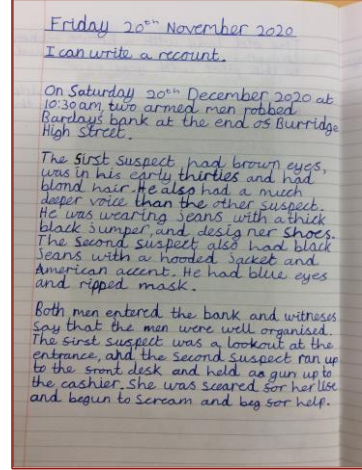 Friday 20th November 2020
I can write a recount.
On Saturday 20th December 2020 at
10:30am, two armed men robbed
Barclays bank at the end of Burridge
High Street.
The first suspect, had brown eyes,
was in his early thirties and had
blond hair. He also had a much
deeper voice than the other suspect.
He was wearing jeans with a thick
black jumper, and designer shoes.
The second suspect also had black
jeans with a hooded jacket and
American accent. He had blue eyes
and ripped mask.
Both men entered the bank and witneses
say that the men were well organised.
The first suspect was a lookout at the
entrance, and the second suspect ran up
to the front desk and held a gun up to
the cashier. She was sceared for her life
and begun to scream and beg for help.